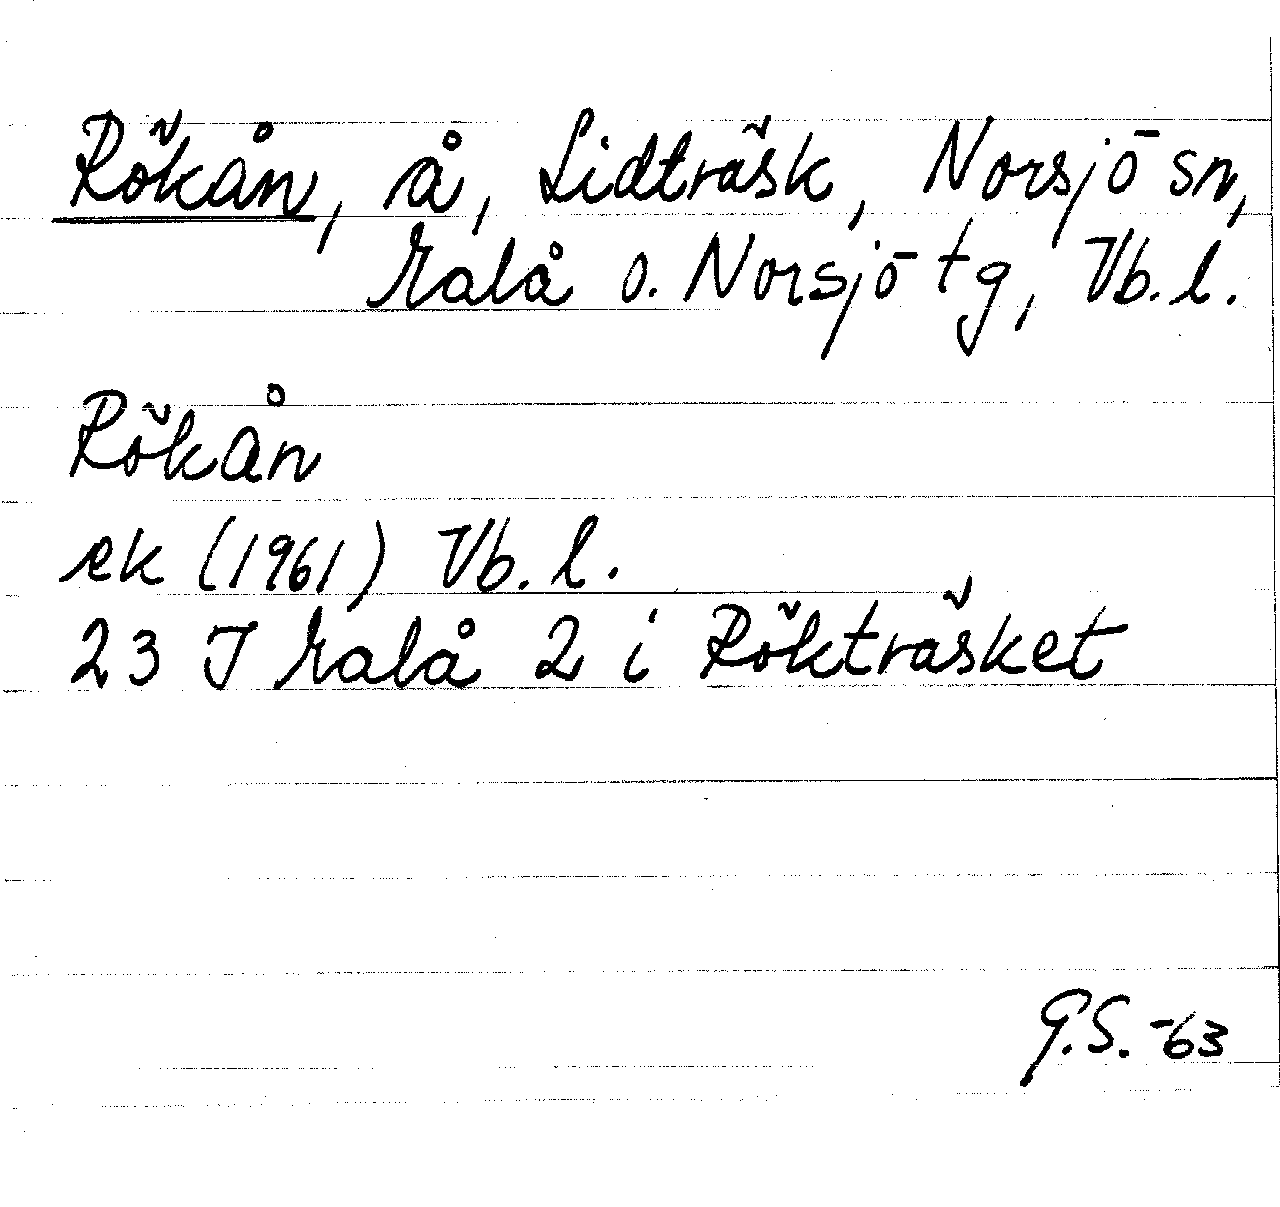 Rökån, å, Lidträsk, Norsjö sn,
Malå o. Norsjö tg, Vb. l.
Rökån
ek (1961) Vb. l.
23 J Malå 2 i Rökträsket
G.S. -63